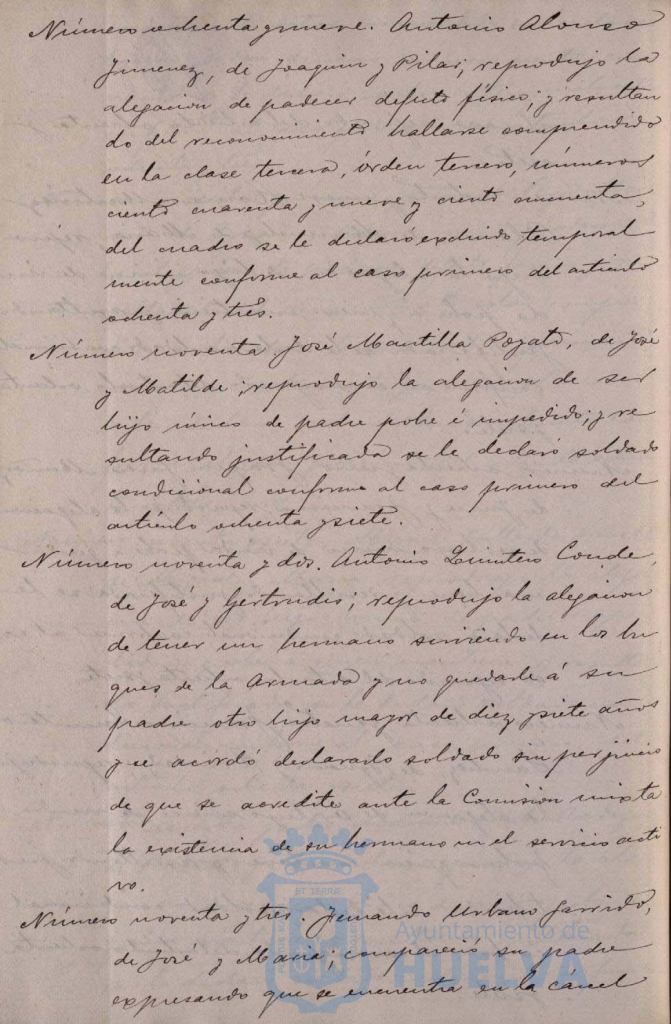 Número ochenta y nueve. Antonio Alonso
Jimenez, de Joaquin y Pilar; reprodujo la
alegacion de padecer defecto físico; y resultan
do del reconocimiento hallarse comprendido
en la clase tercera, órden tercero, números
ciento cuarenta y nueve y ciento cincuenta,
del cuadro se le declaró excluido temporal
mente conforme al caso primero del articulo
ochenta y tres.
Número noventa José Mantilla Pozato, de José
y Matilde; reprodujo la alegacion de ser
hijo único de padre pobre é impedido; y re
sultando justificada se le declaró soldado
condicional conforme al caso primero del
artículo ochenta y siete.
Número noventa y dos. Antonio Quintero Conde,
de José y Gertrudis; reprodujo la alegacion
de tener un hermano sirviendo en los bu
ques de la Armada y no quedarle á su
padre otro hijo mayor de diez y siete años
y se acordó declararlo soldado sin perjuicio
de que se acredite ante la Comision mixta
la existencia de su hermano en el servicio acti
vo.
Número noventa y tres. Fernando Urbano Garrido,
de José y Maria; compareció su padre
expresando que se encuentra en la carcel
ET TERRÆ
Ayuntamiento de
HUELVA